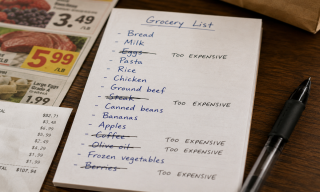 Grocery List
- Bread
- Milk
- Eggs TOO EXPENSIVE
- Pasta
- Rice
- Chicken
- Ground beef
- Steak TOO EXPENSIVE
- Canned beans
- Bananas
- Apples
- Coffee TOO EXPENSIVE
- Olive oil TOO EXPENSIVE
- Frozen vegetables
- Berries TOO EXPENSIVE
3.49
/LB
5.99
/LB
Large Eggs
1.99
TOTAL
$107.94